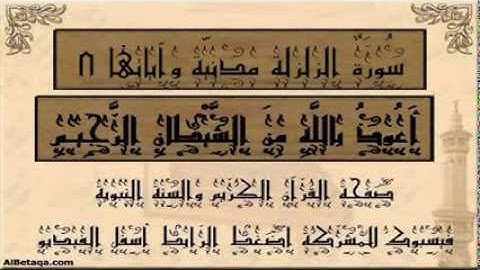 سُورَةُ الزلزلة مَدَنِيَّة وآياتها ٨
أَعُوذُ بِاللَّهِ مِنَ الشَّيْطَانِ الرَّجِيمِ
صفحة القرآن الكريم والسنة النبوية
فيسبوك للمشاركة اضغط الرابط أسفل الفيديو
AlBetaqa.com